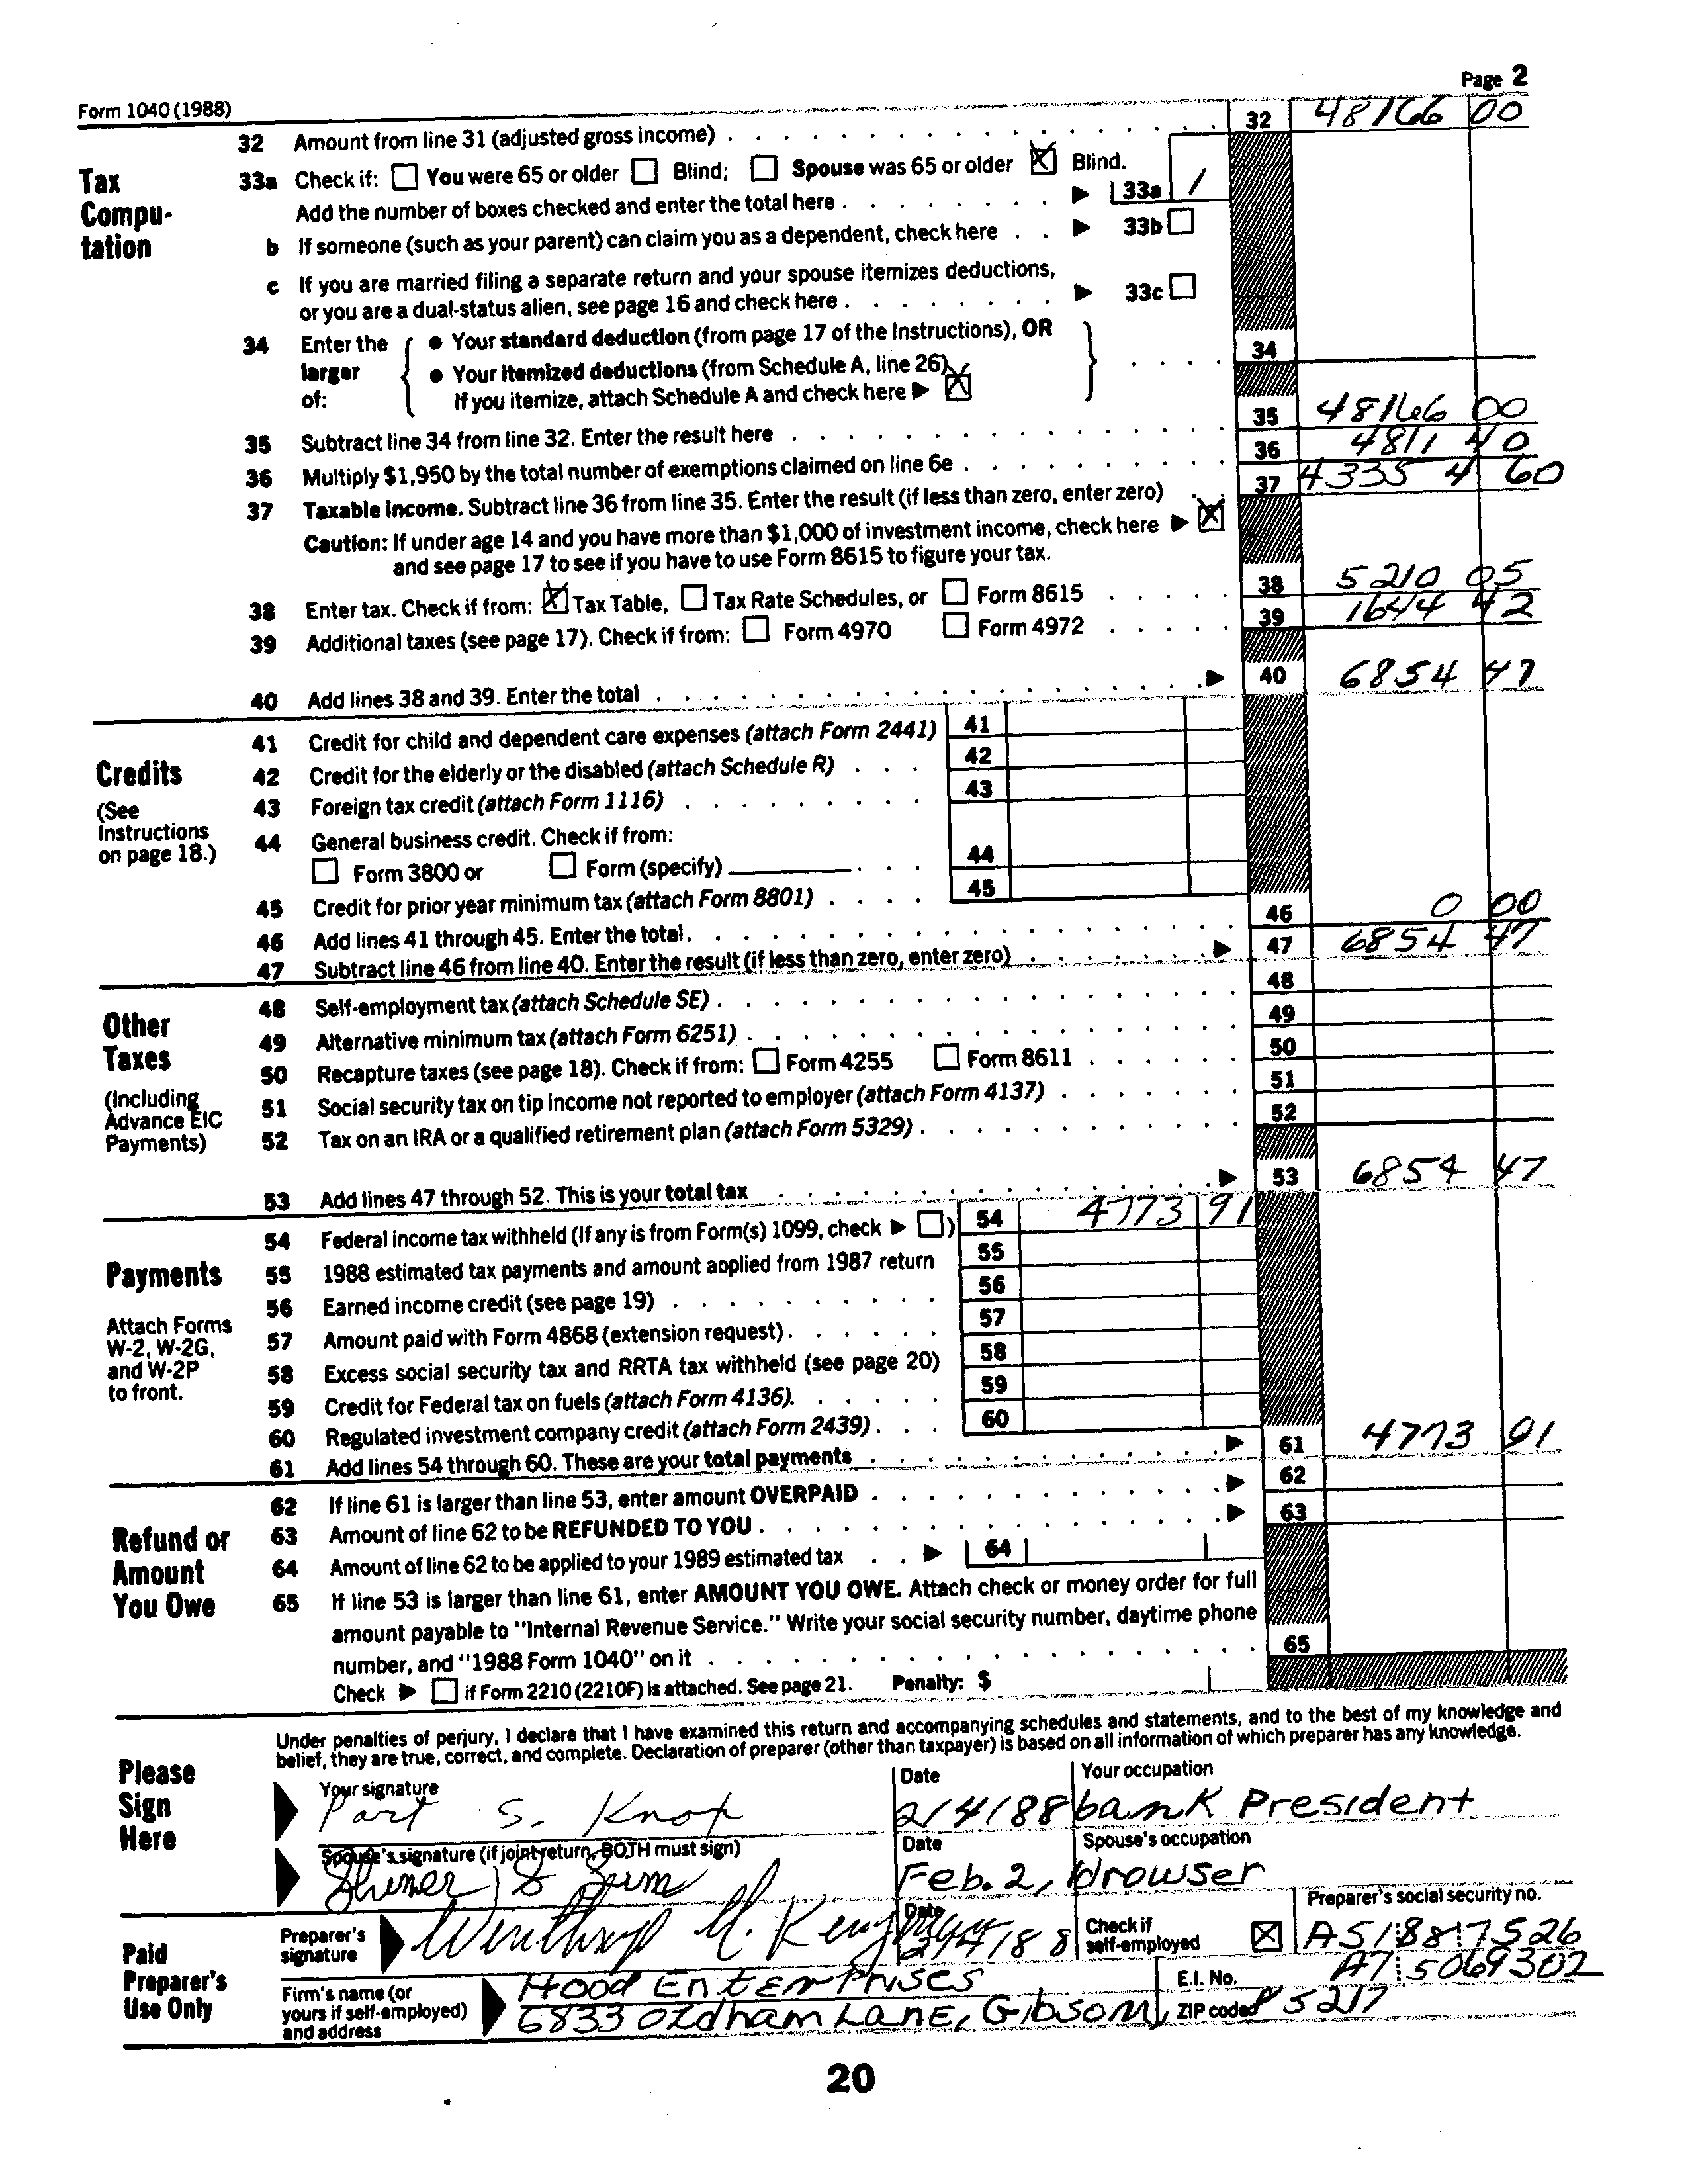 Form 1040 (1988)
Page 2
32 Amount from line 31 (adjusted gross income) 32 48166 00
Tax Compu-tation
33a Check if: You were 65 or older Blind; Spouse was 65 or older X Blind.
Add the number of boxes checked and enter the total here 33a 1
b If someone (such as your parent) can claim you as a dependent, check here 33b
c If you are married filing a separate return and your spouse itemizes deductions,
or you are a dual-status alien, see page 16 and check here 33c
34 Enter the larger of:
• Your standard deduction (from page 17 of the Instructions), OR 34
• Your itemized deductions (from Schedule A, line 26)
If you itemize, attach Schedule A and check here X
35 Subtract line 34 from line 32. Enter the result here 35 48166 00
36 Multiply $1,950 by the total number of exemptions claimed on line 6e 36 4811 40
37 Taxable income. Subtract line 36 from line 35. Enter the result (if less than zero, enter zero) 37 43354 60
Caution: If under age 14 and you have more than $1,000 of investment income, check here X
and see page 17 to see if you have to use Form 8615 to figure your tax.
38 Enter tax. Check if from: X Tax Table, Tax Rate Schedules, or Form 8615 38 5210 05
39 Additional taxes (see page 17). Check if from: Form 4970 Form 4972 39 1644 42
40 Add lines 38 and 39. Enter the total 40 6854 47
Credits
(See Instructions on page 18.)
41 Credit for child and dependent care expenses (attach Form 2441) 41
42 Credit for the elderly or the disabled (attach Schedule R) 42
43 Foreign tax credit (attach Form 1116) 43
44 General business credit. Check if from:
Form 3800 or Form (specify) 44
45 Credit for prior year minimum tax (attach Form 8801) 45
46 Add lines 41 through 45. Enter the total. 46 0 00
47 Subtract line 46 from line 40. Enter the result (if less than zero, enter zero) 47 6854 47
Other Taxes
(Including Advance EIC Payments)
48 Self-employment tax (attach Schedule SE) 48
49 Alternative minimum tax (attach Form 6251) 49
50 Recapture taxes (see page 18). Check if from: Form 4255 Form 8611 50
51 Social security tax on tip income not reported to employer (attach Form 4137) 51
52 Tax on an IRA or a qualified retirement plan (attach Form 5329) 52
53 Add lines 47 through 52. This is your total tax 53 6854 47
Payments
Attach Forms W-2, W-2G, and W-2P to front.
54 Federal income tax withheld (If any is from Form(s) 1099, check ) 54 4773 91
55 1988 estimated tax payments and amount applied from 1987 return 55
56 Earned income credit (see page 19) 56
57 Amount paid with Form 4868 (extension request) 57
58 Excess social security tax and RRTA tax withheld (see page 20) 58
59 Credit for Federal tax on fuels (attach Form 4136) 59
60 Regulated investment company credit (attach Form 2439) 60
61 Add lines 54 through 60. These are your total payments 61 4773 91
Refund or Amount You Owe
62 If line 61 is larger than line 53, enter amount OVERPAID 62
63 Amount of line 62 to be REFUNDED TO YOU 63
64 Amount of line 62 to be applied to your 1989 estimated tax 64
65 If line 53 is larger than line 61, enter AMOUNT YOU OWE. Attach check or money order for full
amount payable to "Internal Revenue Service." Write your social security number, daytime phone
number, and "1988 Form 1040" on it 65
Check if Form 2210 (2210F) is attached. See page 21. Penalty: $
Please Sign Here
Under penalties of perjury, I declare that I have examined this return and accompanying schedules and statements, and to the best of my knowledge and
belief, they are true, correct, and complete. Declaration of preparer (other than taxpayer) is based on all information of which preparer has any knowledge.
Your signature Date Your occupation
Part S. Knox 2/4/88 bank President
Spouse's signature (if joint return, BOTH must sign) Date Spouse's occupation
Feb. 2, drowser
Paid Preparer's Use Only
Preparer's signature Winthrop M. Date 2/4/88 Check if self-employed X Preparer's social security no. A518817526
Firm's name (or yours if self-employed) and address
Hood Enterprises E.I. No. A75069302
6833 Oldham Lane, Gibson, ZIP code P5217
20